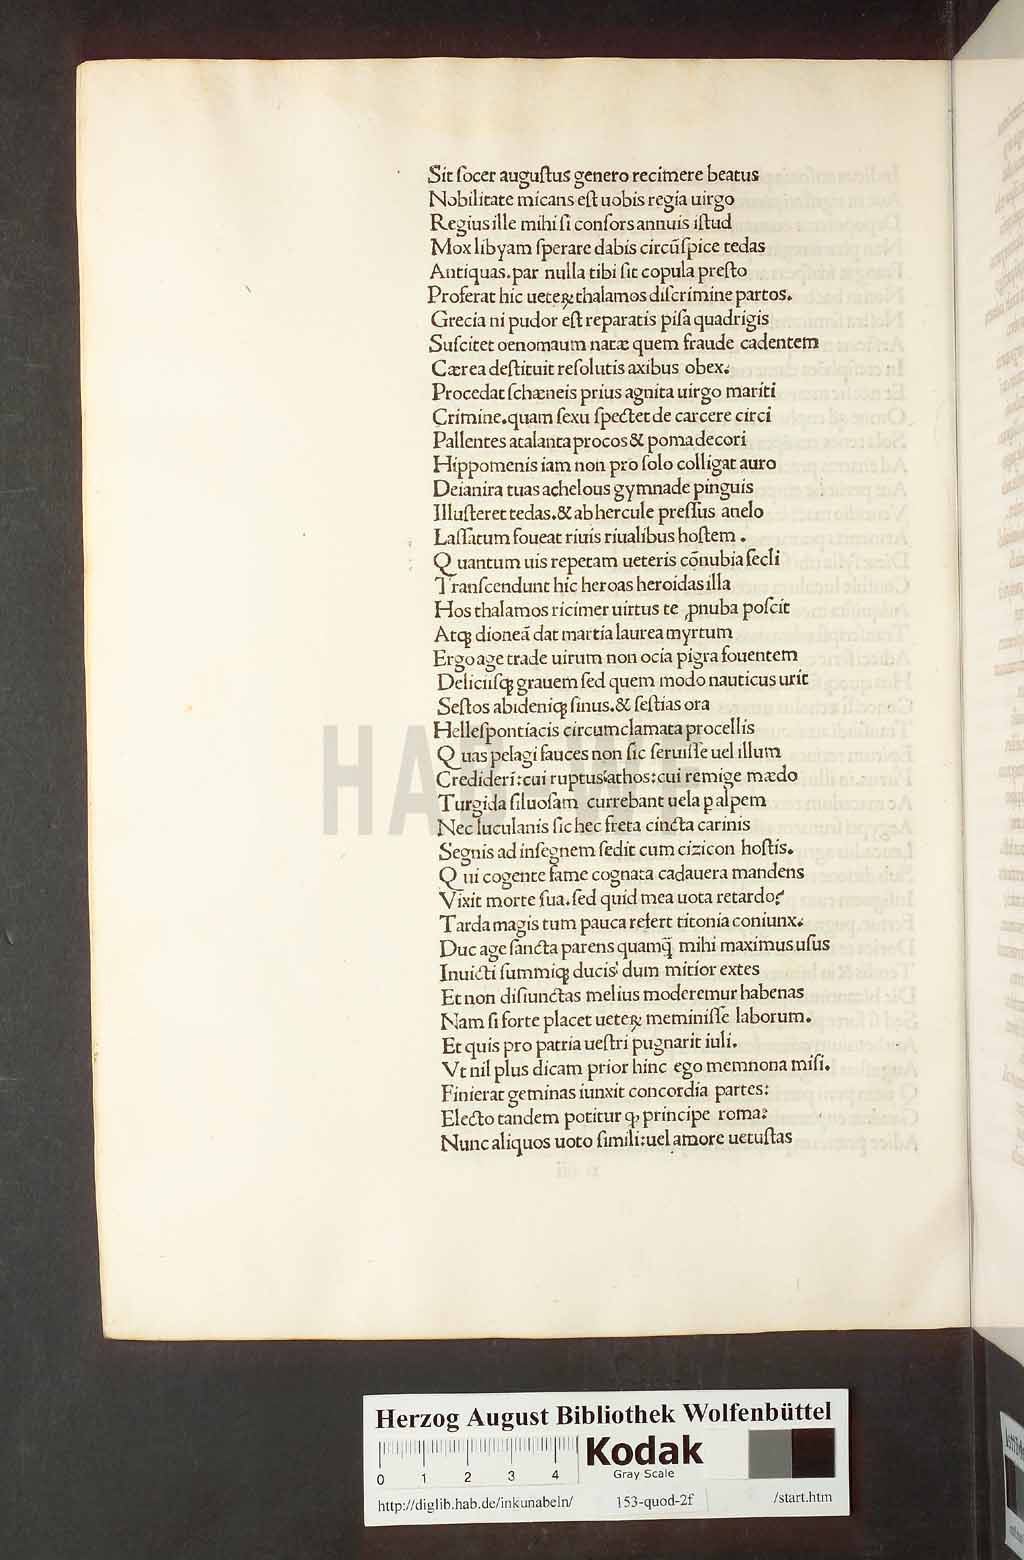 Sit ſocer auguſtus genero recimere beatus
Nobilitate micans eſt uobis regia uirgo
Regius ille mihi ſi conſors annuis iſtud
Mox libyam ſperare dabis circũſpice tedas
Antiquas.par nulla tibi ſit copula preſto
Proferat hic ueteꝝ thalamos diſcrimine partos.
Grecia ni pudor eſt reparatis piſa quadrigis
Suſcitet oenomaum natæ quem fraude cadentem
Cærea deſtituit reſolutis axibus obex.
Procedat ſchæneis prius agnita uirgo mariti
Crimine.quam ſexu ſpectet de carcere circi
Pallentes atalanta procos & poma decori
Hippomenis iam non pro ſolo colligat auro
Deianira tuas achelous gymnade pinguis
Illuſteret tedas.& ab hercule preſſus anelo
Laſſatum foueat riuis riualibus hoſtem.
Quantum uis repetam ueteris cõnubia ſecli
Tranſcendunt hic heroas heroidas illa
Hos thalamos ricimer uirtus te ꝓnuba poſcit
Atqꝫ dioneã dat martia laurea myrtum
Ergo age trade uirum non ocia pigra fouentem
Deliciiſqꝫ grauem ſed quem modo nauticus urit
Seſtos abideniqꝫ ſinus.& ſeſtias ora
Helleſpontiacis circumclamata procellis
Quas pelagi fauces non ſic ſeruiſſe uel illum
Crediderĩ:cui ruptus athos:cui remige mædo
Turgida ſiluoſam currebant uela ꝑ alpem
Nec luculanis ſic hec freta cincta carinis
Segnis ad inſegnem ſedit cum cizicon hoſtis.
Qui cogente fame cognata cadauera mandens
Vixit morte ſua.ſed quid mea uota retardo?
Tarda magis tum pauca refert titonia coniunx.
Duc age ſancta parens quamq̃ mihi maximus uſus
Inuicti ſummiqꝫ ducis dum mitior extes
Et non diſiunctas melius moderemur habenas
Nam ſi forte placet ueteꝝ meminiſſe laborum.
Et quis pro patria ueſtri pugnarit iuli.
Vt nil plus dicam prior hinc ego memnona miſi.
Finierat geminas iunxit concordia partes:
Electo tandem potitur qꝫ principe roma:
Nunc aliquos uoto ſimili:uel amore uetuſtas
HAB-WF
Herzog August Bibliothek Wolfenbüttel
Kodak
Gray Scale
0 1 2 3 4
http://diglib.hab.de/inkunabeln/ 153-quod-2f /start.htm